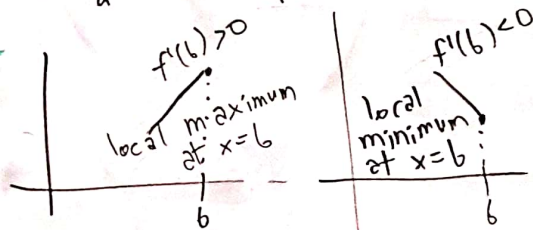 f'(b)>0
local maximum
at x=b
b
f'(b)<0
local
minimum
at x=b
b